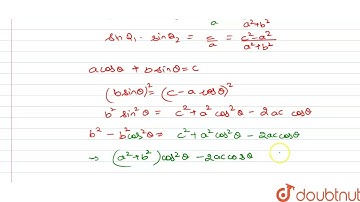 a a²+b²
sinθ₁ . sinθ₂ = c/a = c²-a²/a²+b²
acosθ + bsinθ = c
(bsinθ)² = (c - a cosθ)²
b² sin²θ = c² + a² cos²θ - 2ac cosθ
b² - b²cos²θ = c² + a²cos²θ - 2ac cosθ
→ (a²+b²) cos²θ - 2ac cosθ
doubtnut